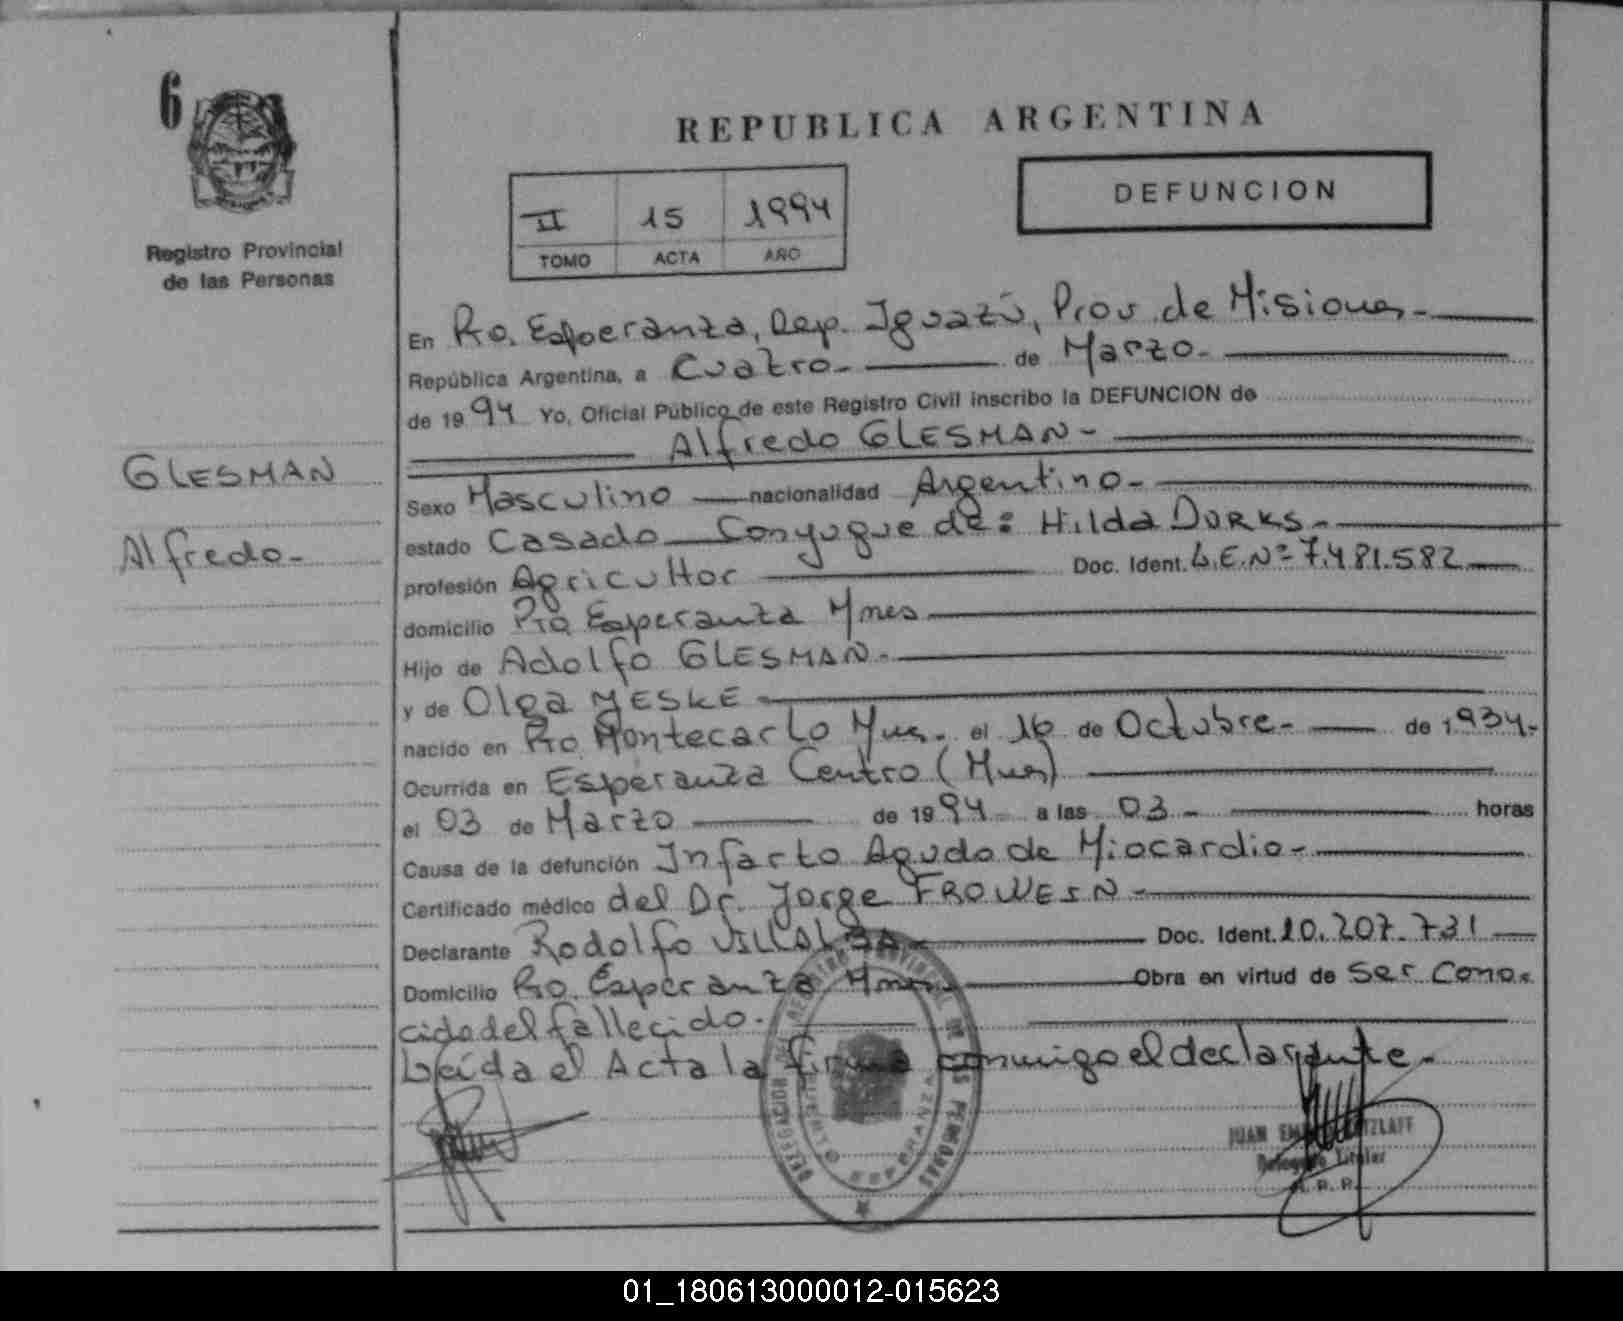 6
Registro Provincial
de las Personas
GLESMAN
Alfredo-
REPUBLICA ARGENTINA
II 15 1994
TOMO ACTA AÑO
DEFUNCION
En Pto. Esperanza, Dep. Iguazú, Prov. de Misiones-
República Argentina, a Cuatro- de Marzo-
de 1994 Yo, Oficial Público de este Registro Civil inscribo la DEFUNCION de
Alfredo GLESMAN-
Sexo Masculino nacionalidad Argentino-
estado Casado Conyugue de: Hilda DORKS-
profesión Agricultor Doc. Ident. L.E.Nº 7.481.582
domicilio Pto Esperanza Mnes
Hijo de Adolfo GLESMAN-
y de Olga MESKE
nacido en Pto Montecarlo Mnes. el 16 de Octubre- de 1934-
Ocurrida en Esperanza Centro (Mnes)
el 03 de Marzo de 1994 a las 03- horas
Causa de la defunción Infarto Agudo de Miocardio-
Certificado médico del Dr. Jorge FROWEIN-
Declarante Rodolfo VILLALBA- Doc. Ident. 10.207.731
Domicilio Pto. Esperanza Mnes Obra en virtud de ser cono-
cido del fallecido.
Leída el Acta la firma conmigo el declarante-
DELEGACION DEL REGISTRO PROVINCIAL DE LAS PERSONAS
PUERTO ESPERANZA
JUAN
Delegado Titular
R. P. P.
01_180613000012-015623